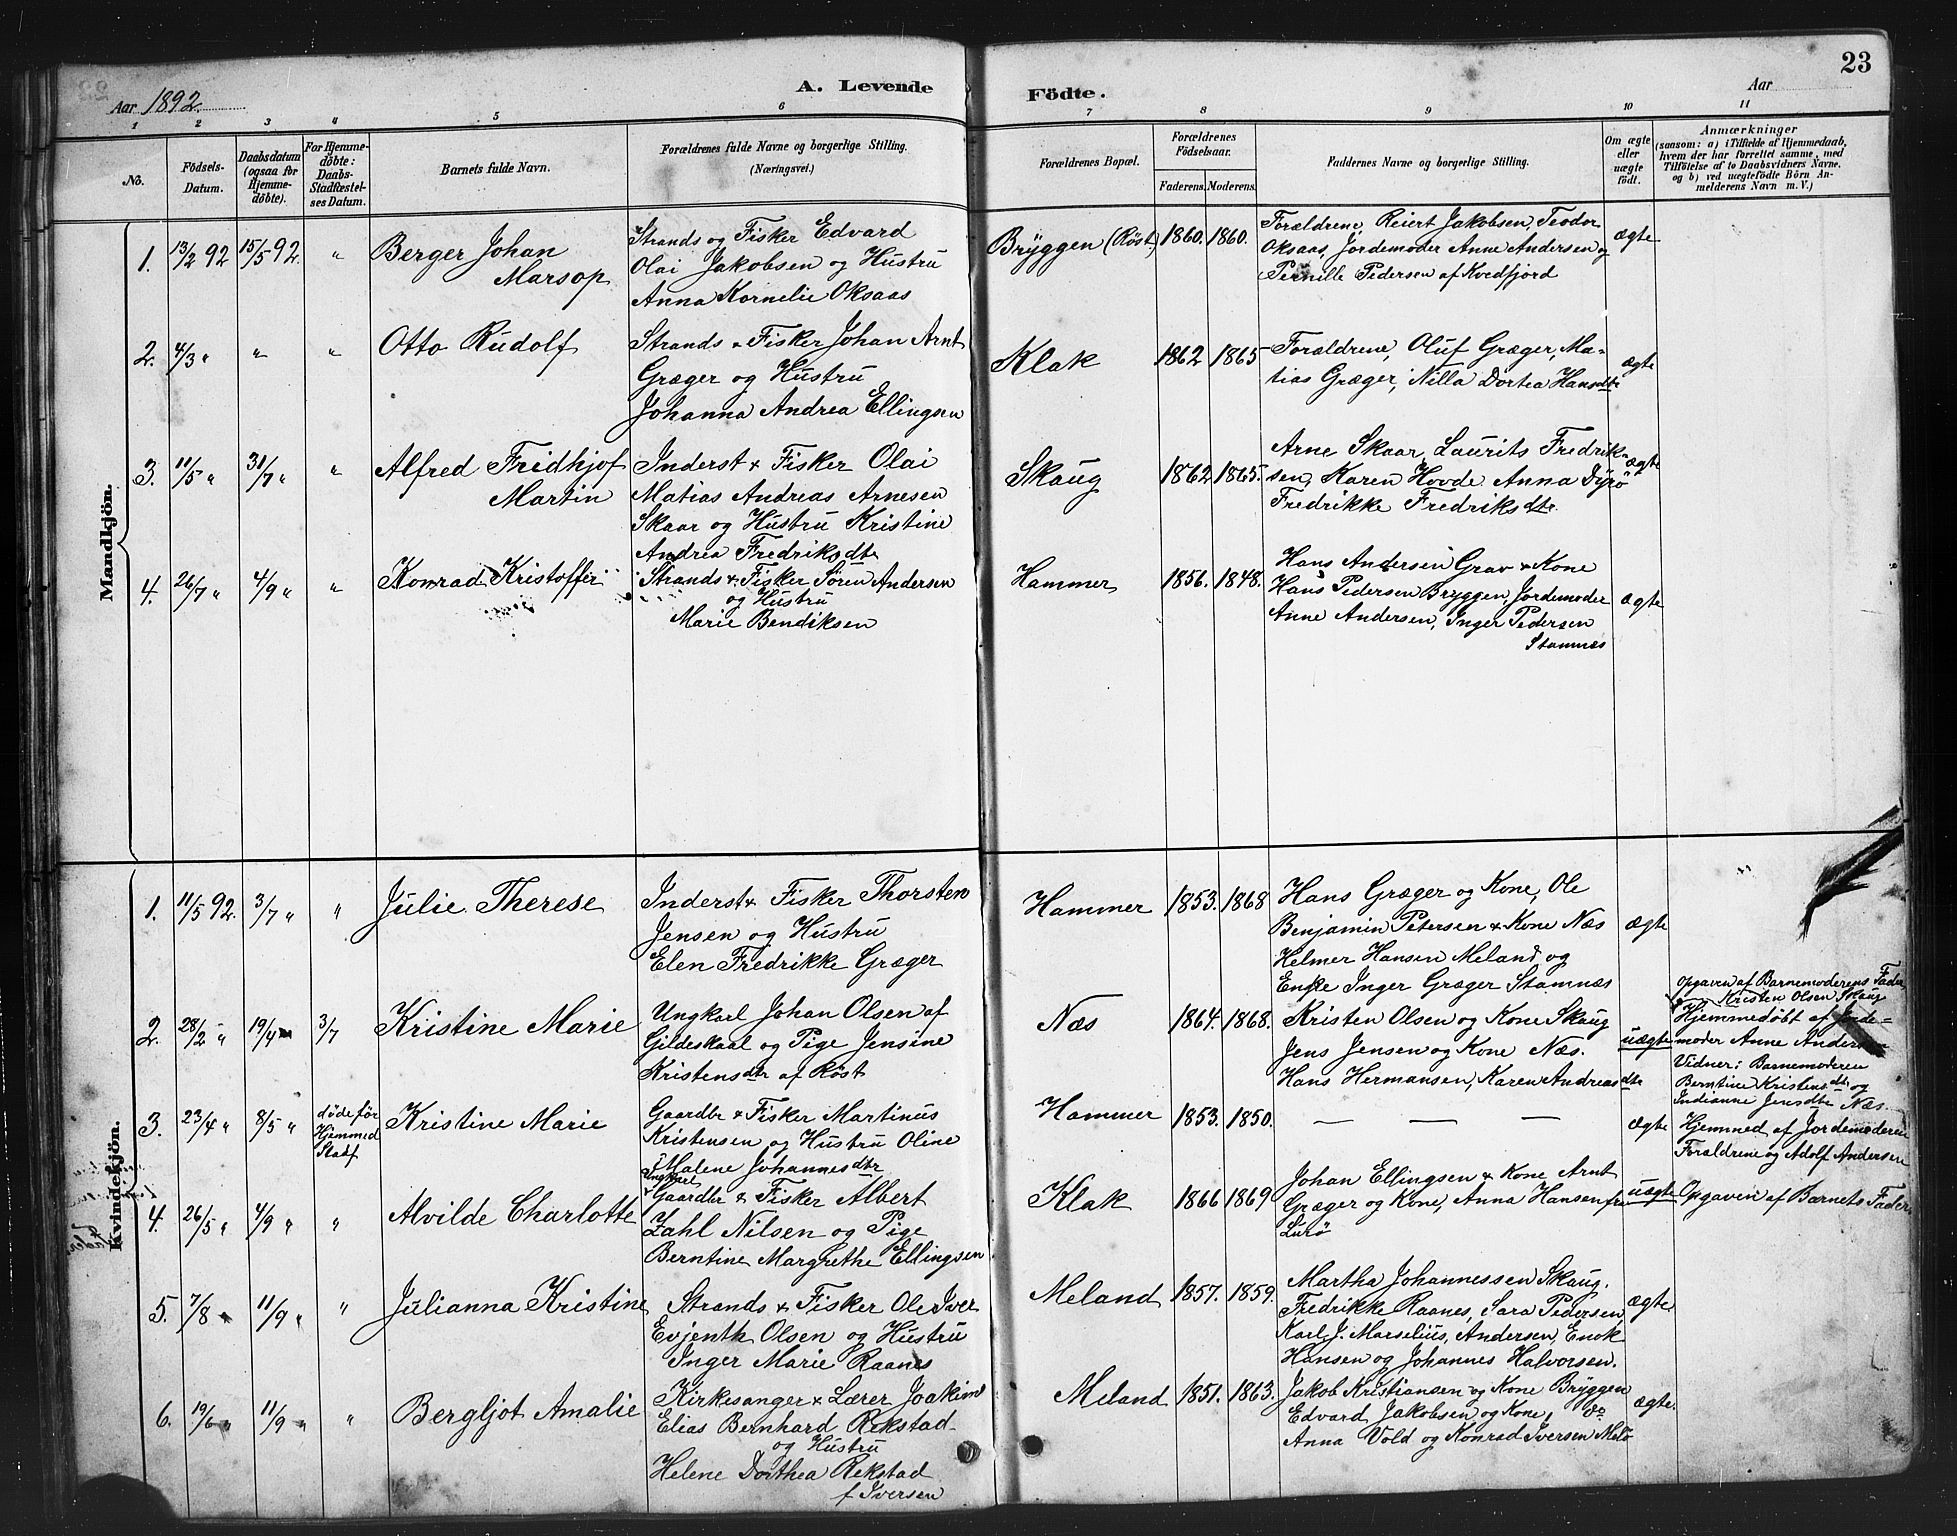 23
Aar 1892.
A. Levende
Födte.
Aar
1 2 3 4 5 6 7 8 9 10 11
No.
Födsels-
Datum.
Daabsdatum
(ogsaa for
Hjemme-
døbte).
For Hjemme-
døbte:
Daabs-
Stadfæstel-
ses Datum.
Barnets fulde Navn.
Forældrenes fulde Navne og borgerlige Stilling.
(Næringsvei.)
Forældrenes Bopæl.
Forældrenes
Födselsaar.
Faderens. Moderens.
Faddernes Navne og borgerlige Stilling.
Om ægte
eller
uægte
födt.
Anmærkninger
(saasom: a) i Tilfælde af Hjemmedaab,
hvem der har forrettet samme, med
Tilföielse af to Daabsvidners Navne.
og b) ved uægtefödte Börn An-
melderens Navn m. V.)
Mandkjön.
1. 13/2 92 15/5 92. "
Berger Johan
Marsop
Strands og Fisker Edvard
Olai Jakobsen og Hustru
Anna Kornelie Oksaas
Bryggen (Røst)
1860. 1860.
Forældrene, Reiert Jakobsen, Teodor
Oksaas, Jordemoder Anne Andersen og
Pernille Pedersen af Kvedfjord
ægte
2. 4/3 " " "
Otto Rudolf
Strands & Fisker Johan Arnt
Græger og Hustru
Johanna Andrea Ellingsen
Klak
1862 1865
Forældrene, Oluf Græger, Ma-
tias Græger, Nilla Dortea Hansdtr
ægte
3. 11/5 " 31/7 " "
Alfred Fridhjof
Martin
Inderst & Fisker Olai
Matias Andreas Arnesen
Skaar og Hustru Kristine
Andrea Fredriksdtr
Skaug
1862 1865.
Arne Skaar, Laurits Fredrik-
sen, Karen Hovde Anna Dyrø
Fredrikke Fredriksdtr.
ægte
4. 26/7 " 4/9 " "
Konrad Kristoffer
Strands & Fisker Sören Andersen
og Hustru
Marie Bendiksen
Hammer
1856. 1848.
Hans Andersen Grav & Kone
Hans Pedersen Bryggen, Jordemoder
Anne Andersen, Inger Pedersen
Stamnæs
ægte
Kvindekjön.
1. 11/5 92. 3/7 " "
Julie Therese
Inderst & Fisker Thorsten
Jensen og Hustru
Elen Fredrikke Græger
Hammer
1853. 1868
Hans Græger og Kone, Ole
Benjamin Petersen & Kone Næs
Helmer Hansen Meland og
Enke Inger Græger Stamnæs
ægte
2. 28/2 " 19/4 " 3/7
Kristine Marie
Ungkarl Johan Olsen af
Gildeskaal og Pige Jensine
Kristensdtr af Røst
Næs
1864. 1868.
Kristen Olsen og Kone Skaug
Jens Jensen og Kone Næs.
Hans Hermansen, Karen Andreasdtr
uægte
Opgaven af Barnemoderens Fader
Kristen Olsen Skaug
Hjemmedøbt af Jorde-
moder Anne Andersen
Vidner: Barnemoderen
Berntine Kristensdtr og
Indianne Jensdtr Næs.
3. 23/4 " 8/5 "
døde før
Hjemmed
Stadf
Kristine Marie
Gaardbr & Fisker Martinus
Kristensen og Hustru Oline
Malene Johannesdtr
Hammer
1853. 1850.
— —
ægte
Hjemmed af Jordemoderen
Forældrene og Adolf Andersen
4. 26/5 " 4/9 " "
Alvilde Charlotte
Ungkarl
Gaardbr & Fisker Albert
Zahl Nilsen og Pige
Berntine Margrethe Ellingsen
Klak
1866 1869
Johan Ellingsen & Kone Arnt
Græger og Kone, Anna Hansen fra
Lurø
uægte
Opgaven af Barnets Fader
5. 7/8 " 11/9 " "
Julianna Kristine
Strands & Fisker Ole Iver
Evjenth Olsen og Hustru
Inger Marie Raanes
Meland
1857. 1859.
Martha Johannessen Skaug.
Fredrikke Raanes, Sara Pedersen,
Karl J. Marselius, Andersen, Enok
Hansen og Johannes Halvorsen.
ægte
6. 19/6 " 11/9 " "
Bergljot Amalie
Kirkesanger & Lærer Joakim
Elias Bernhard Rekstad
og Hustru
Helene Dorthea Rekstad
f Iversen
Meland
1851. 1863.
Jakob Kristiansen og Kone Bryggen
Edvard Jakobsen og Kone, do
Anna Vold og Konrad Iversen Melø
ægte.